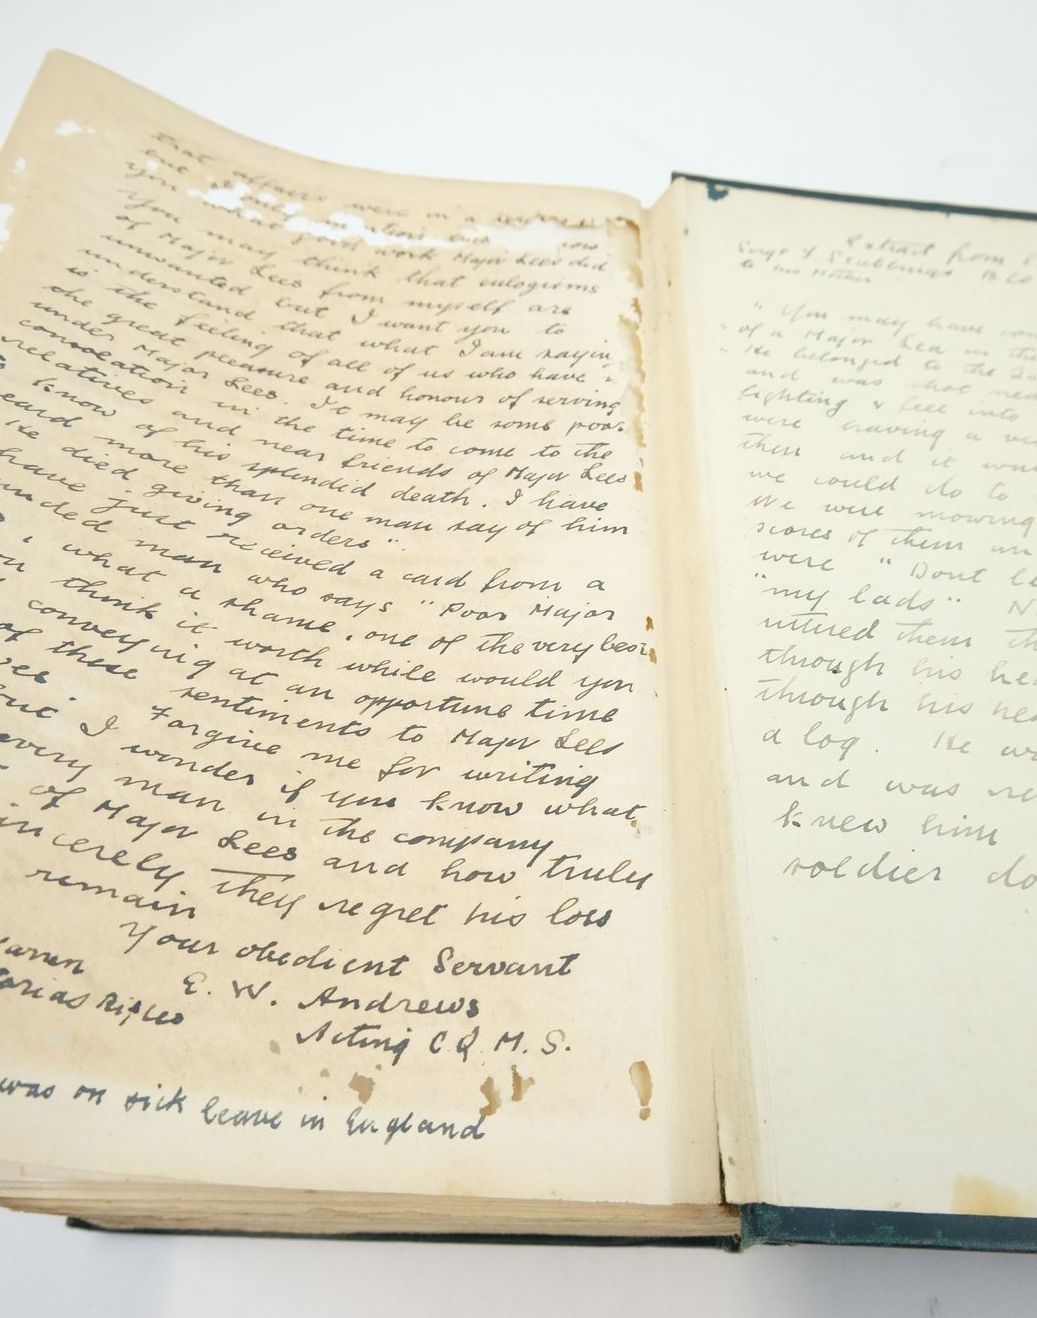 that affairs were in a
but
you what good work Major Lees did
You may think that eulogisms
of Major Lees from myself are
unwanted but I want you to
understand that what I am sayin
is the feeling of all of us who have
the great pleasure and honour of serving
under Major Lees. It may be some poor
consolation in the time to come to the
relatives and near friends of Major Lees
know of his splendid death. I have
eard more than one man say of him
He died giving orders".
have just received a card from a
unded man who says "Poor Major
what a shame, one of the very best
think it worth while would you
conveying at an opportune time
of these sentiments to Major Lees
Forgive me for writing
but I wonder if you know what
every man in the company
of Major Lees and how truly
incerely they regret his loss
remain
Your obedient Servant
E. W. Andrews
Acting C Q M. S.
was on sick leave in England
Extract from
Sergt J Stubbings B Co
to his Mother
"You may have
of a Major Lea in the
"He belonged to the
and was shot nea
fighting & fell into
were having a ve
them and it was
we could do to
We were mowing
scores of them an
were "Dont le
"my lads" N
uttered them th
through his hea
through his nec
a log. He wa
and was
knew him
soldier do